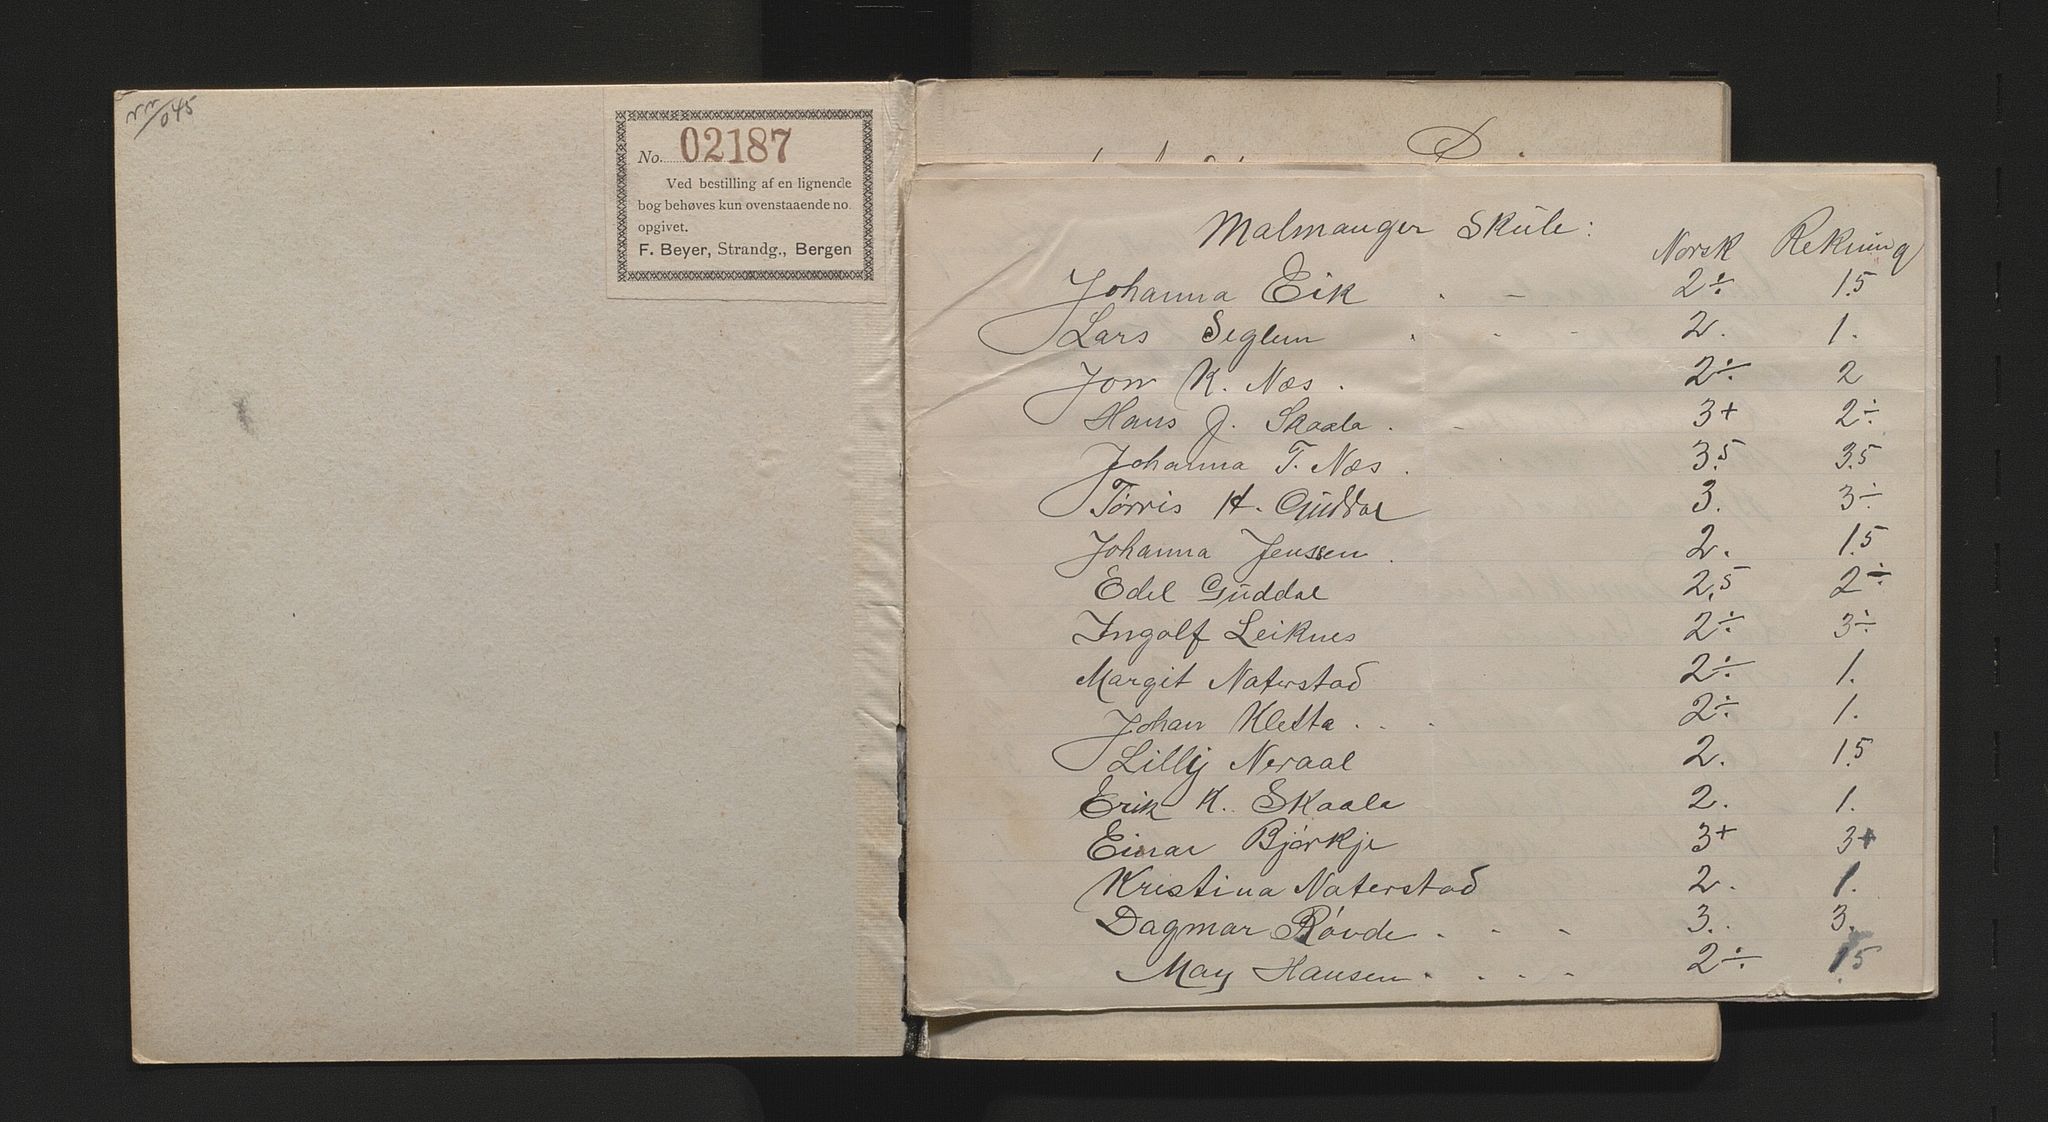 No. 02187
Ved bestilling af en lignende
bog behøves kun ovenstaaende no.
opgivet.
F. Beyer, Strandg., Bergen
Malmanger Skule:
Norsk Rekning
Johanna Eik . - 2÷ 1.5
Lars Seglem . - - 2. 1.
Jon K. Næs . 2÷ 2
Hans J. Skaala . - 3+ 2÷
Johanna T. Næs . 3.5 3.5
Tørris H. Guddal 3. 3÷
Johanna Jenssen . 2. 1.5
Edel Guddal 2.5 2÷
Ingolf Leiknes 2÷ 3÷
Margit Naterstad 2÷ 1.
Johan Kletta . . . 2÷ 1.
Lilly Neraal 2. 1.5
Erik K. Skaala 2. 1.
Einar Bjørkje 3+ 3+
Kristina Naterstad 2. 1.
Dagmar Røvde . - - 3. 3.
May Hansen . . . - 2÷ 1.5